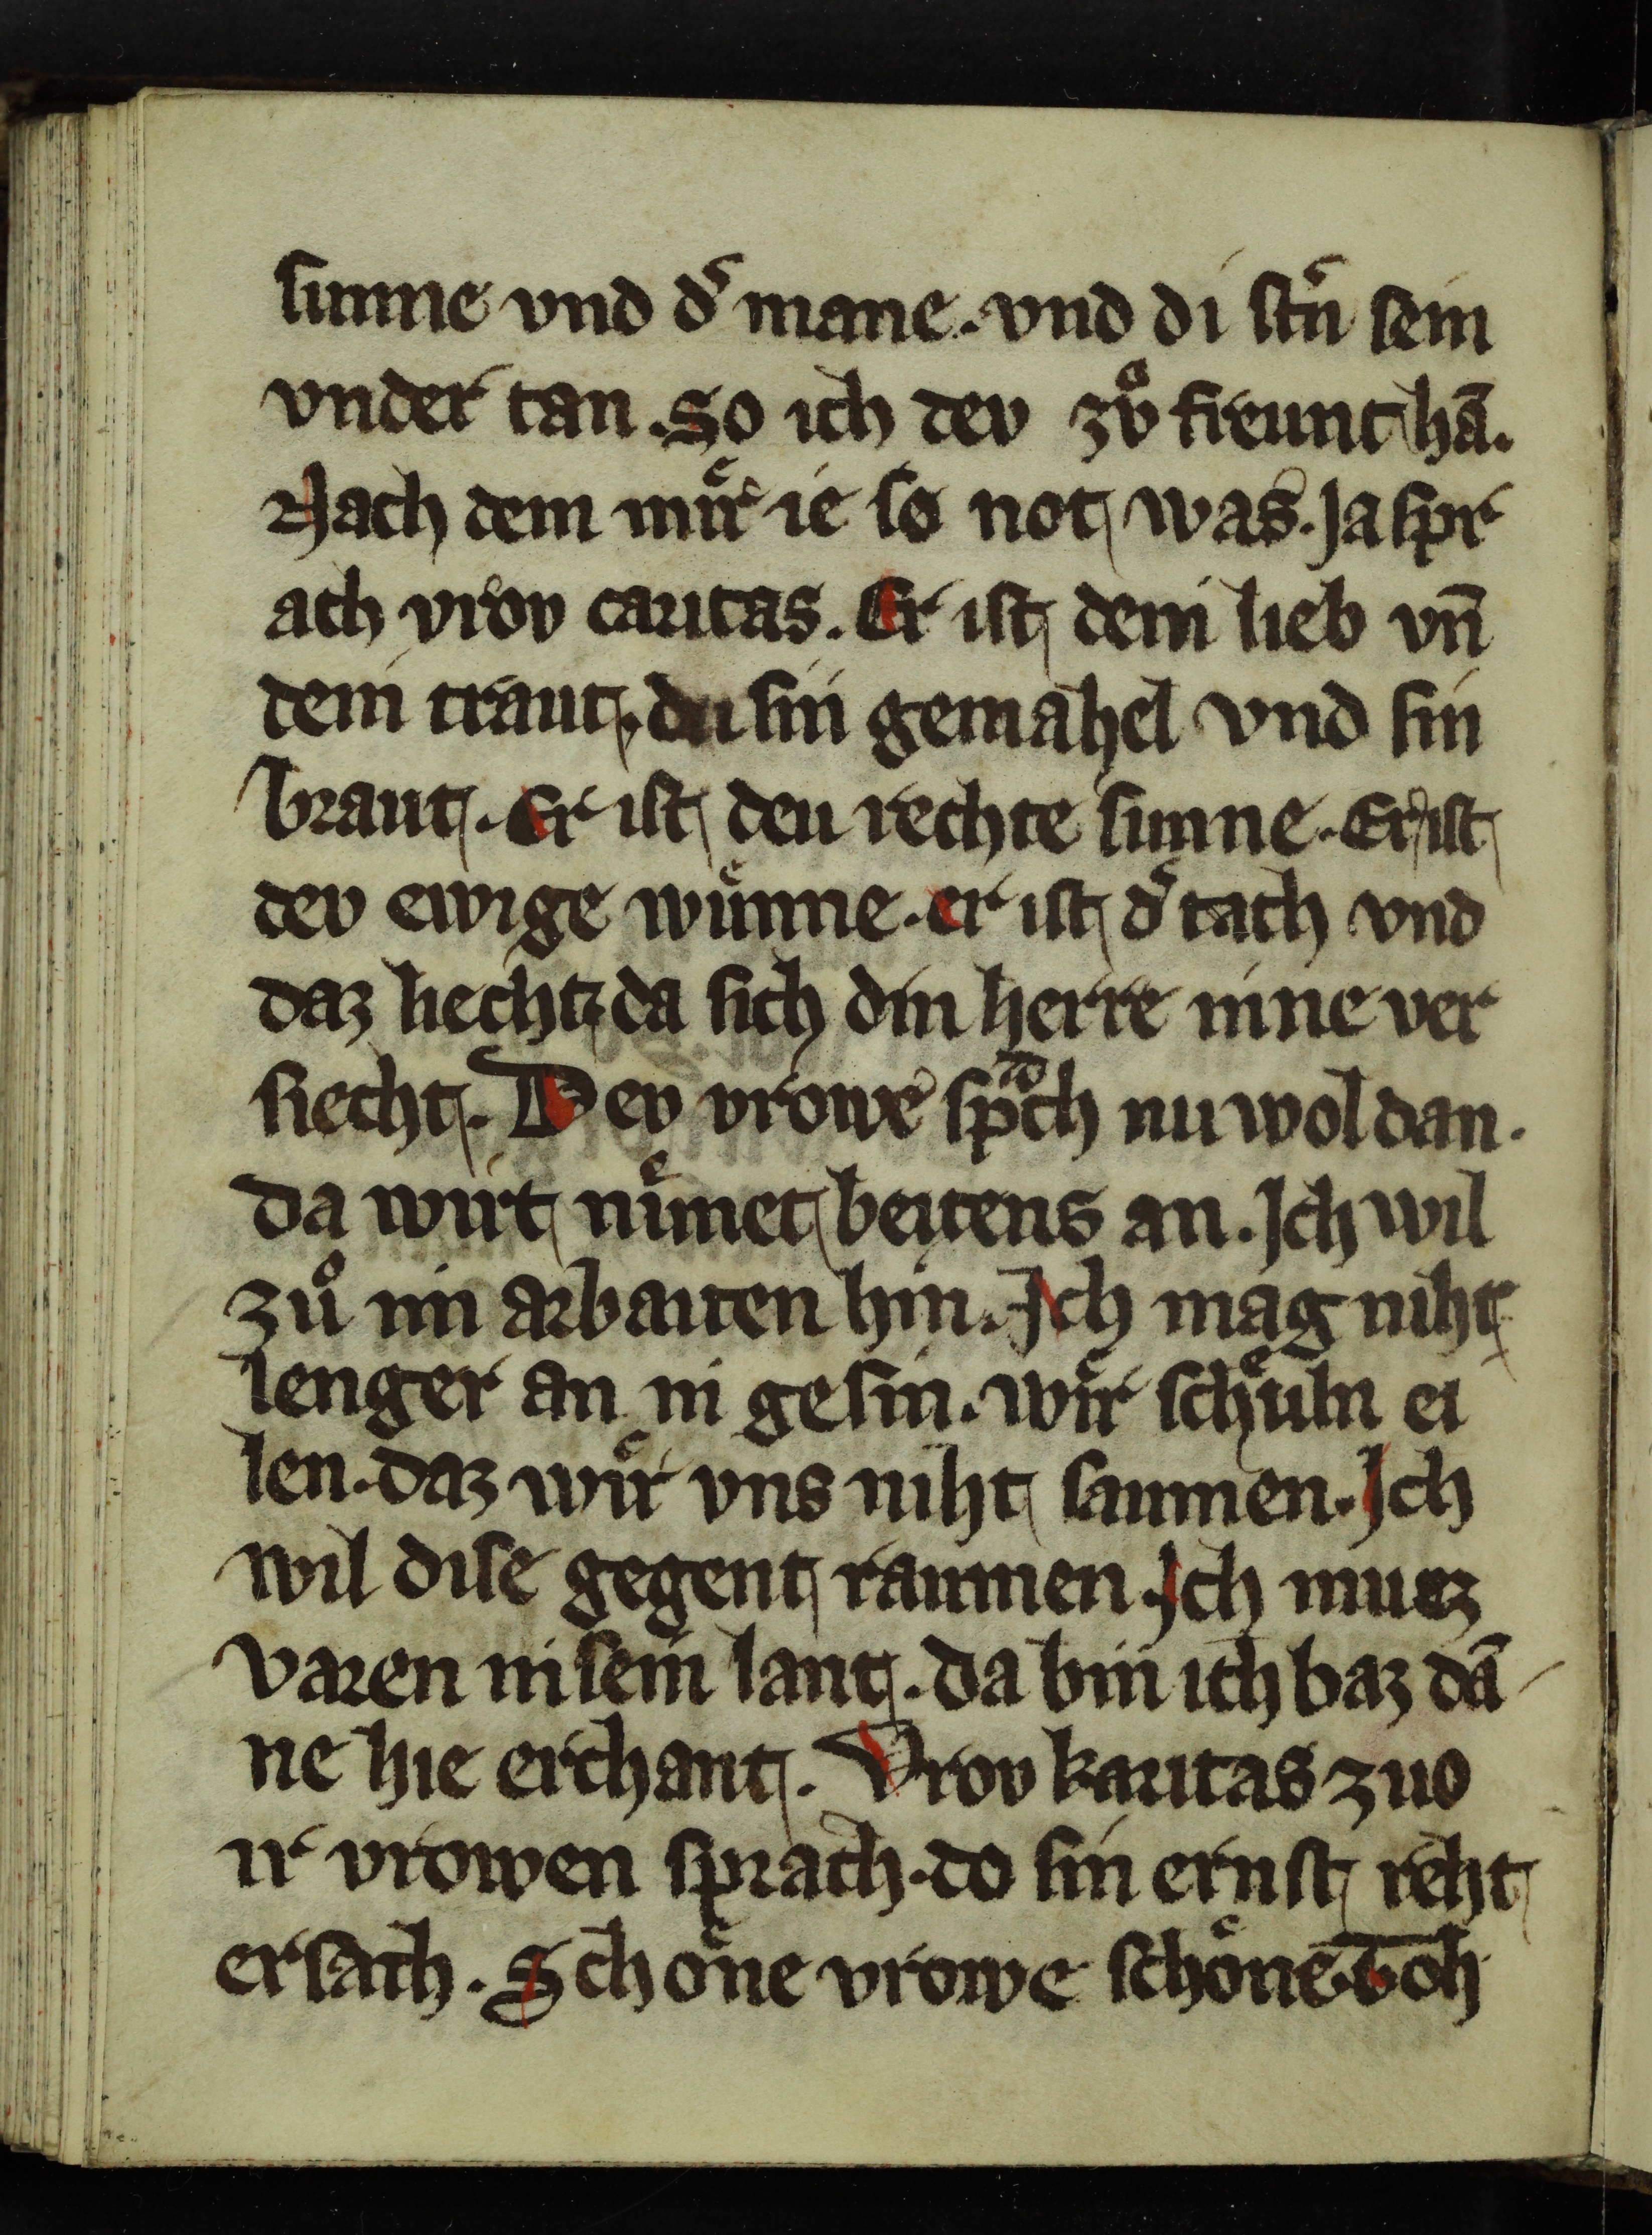 sunne vnd d͛ mane. vnd di stn͛ sein
vnder tan. So ich dev zvͦ freunt hā.
Nach dem muͤr ie so not was. Ja spr
ach vrov caritas. Er ist dein lieb vn̄
dein traut. du sin gemahel vnd sin
braut. Er ist deu rechte sunne. Er ist
dev ewige wuͤnne. er ist d͛ tach vnd
daz liecht da sich din herre inne ver
siecht. Dev vrowe spͣch nu wol dan.
da wirt nuͤmet beitens an. Ich wil
zuͦ im arbaiten hin. Ich mag niht
lenger an in gesin. wuͤr schuͤln ei
len. daz wuͤr vns niht saumen. Ich
wil dise gegent raumen. Ich muez
varen in sein lant. da bin ich baz dā
ne hie erchant. Vrov karitas zuo
ir vrowen sprach. do sin ernst reht
ersach. Schoͤne vrowe schoͤne toh